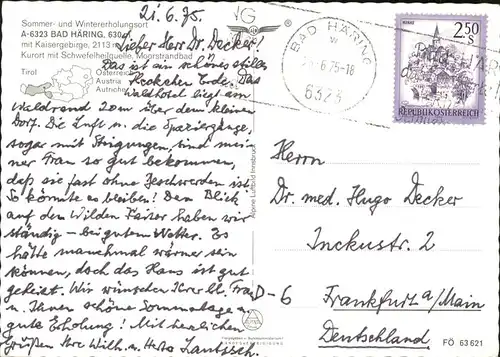 21.6.75.
Sommer- und Wintererholungsort
A-6323 BAD HÄRING, 630
mit Kaisergebirge, 2113 m
Kurort mit Schwefelheilquelle, Moorstrandbad
Tirol
Österreich
Austria
Autriche
Lieber Herr Dr. Decker!
Das ist ein schönes stilles
Fleckchen Erde. Das
Waldhotel liegt am
Waldrand 20 m über dem kleinen
Dorf. Die Luft u. die Spaziergänge,
sogar mit Steigungen, sind mei-
ner Frau so gut bekommen,
daß sie fast ohne Beschwerden ist.
So könnte es bleiben! Den Blick
auf den Wilden Kaiser haben wir
ständig - bei gutem Wetter. Es
hätte manchmal wärmer sein
können, doch das Haus ist gut
geheizt. Wir wünschen Ihrer lb. Frau
u. Ihnen schöne Sommertage u.
gute Erholung! Mit herzlichen
Grüßen Ihre Wilh. u.
Alpine Luftbild Innsbruck
BAD HÄRING
6323
2.50
S
REPUBLIK ÖSTERREICH
Herrn
Dr. med. Hugo Decker
Inckustr. 2
D-6 Frankfurt a/Main
Deutschland
FÖ 63 621